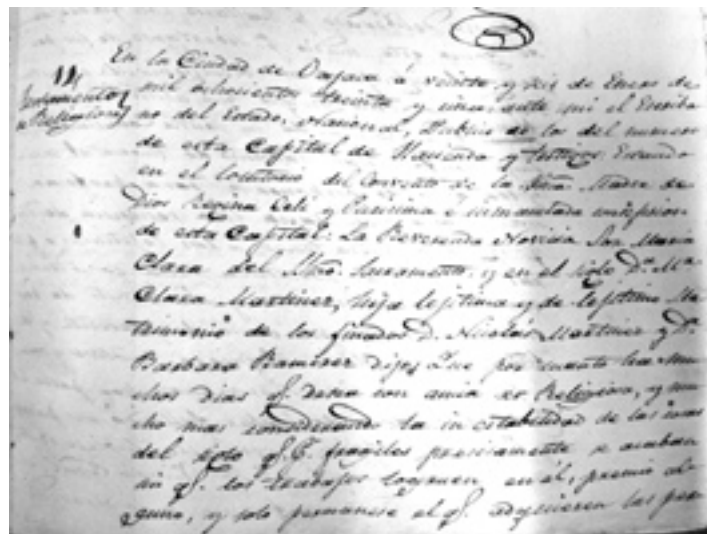 En la Ciudad de Oajaca á veinte y seis de Enero de
Testamento mil ochocientos treinta y uno: ante mi el Escriba
de Religiosa no del Estado, Nacional, Publico de los del numero
de esta Capital de Hacienda y testigos: Estando
en el locutorio del Convento de la Madre de
Dios Regina Celi y Purisima é inmaculada consepsion
de esta Capital: La Reverenda Novicia Sor Maria
Clara del Smo. Sacramento, y en el siglo Da. Ma.
Clara Martinez, hija lejitima y de lejitimo Ma
trimonio de los finados D. Nicolas Martinez y Da.
Barbara Ramirez dijo: Que por cuanto hace mu
chos dias q. desea con ansia ser Religiosa, y mu
cho mas considerando la instabilidad de las cosas
del siglo q. fragiles precisamente se acaban
sin q. los trabajos logren en él, premio al
guno, y solo permanece el q. adquieren las per